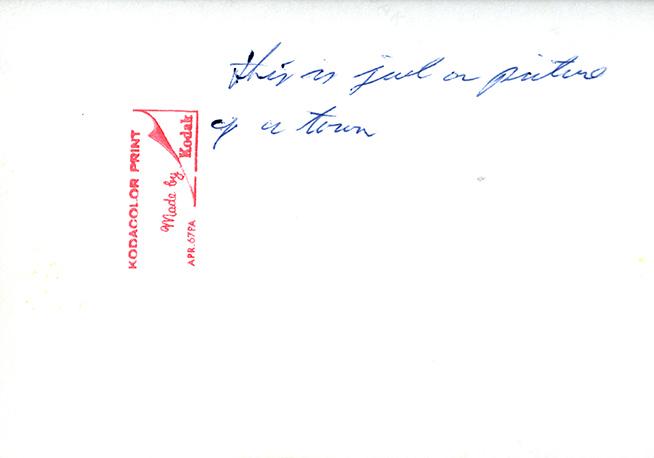 this is just a picture
of a town
KODACOLOR PRINT
Made by
Kodak
APR.67PA